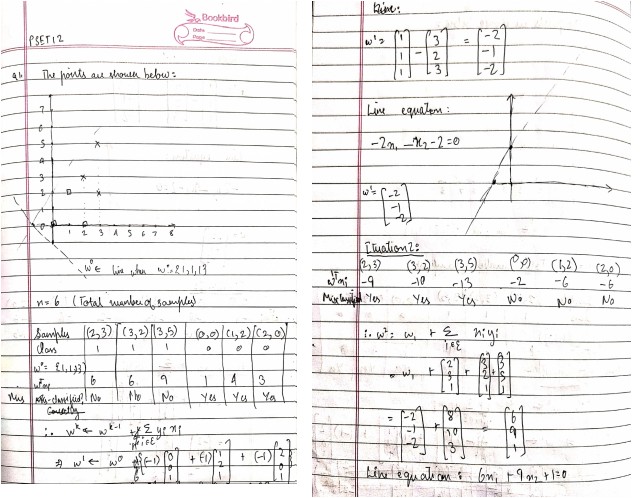 Bookbird
Date
Page
PSET 12
Q1. The points are shown below:
7
6
5
4
3
2
1
0 1 2 3 4 5 6 7 8
w⁰ ← line when w⁰ = {1,1,1}
n = 6 (Total number of samples)
Samples (2,3) (3,2) (3,5) (0,0) (1,2) (2,0)
Class 1 1 1 0 0 0
w⁰ = {1,1,1}
6 6 9 1 4 3
Miss-classified? No No No Yes Yes Yes
∴ wᵏ ← wᵏ⁻¹ + Σ yᵢ xᵢ
i∈ε
⇒ w¹ ← w⁰ + (-1) [0 0 1] + (-1) [1 2 1] + (-1) [2 0 1]
Line:
w¹ = [1 1 1] - [3 2 3] = [-2 -1 -2]
Line equation:
-2x₁ - x₂ - 2 = 0
w¹ = [-2 -1 -2]
Ituation 2:
(2,3) (3,2) (3,5) (0,0) (1,2) (2,0)
w¹ᵀxᵢ -9 -10 -13 -2 -6 -6
Missclassified Yes Yes Yes No No No
∴ w² = w₁ + Σ xᵢyᵢ
i∈ε
= w₁ + [2 3 1] + [3 2 1] + [3 5 1]
= [-2 -1 -2] + [8 10 3] = [6 9 1]
Line equation: 6x₁ + 9x₂ + 1 = 0